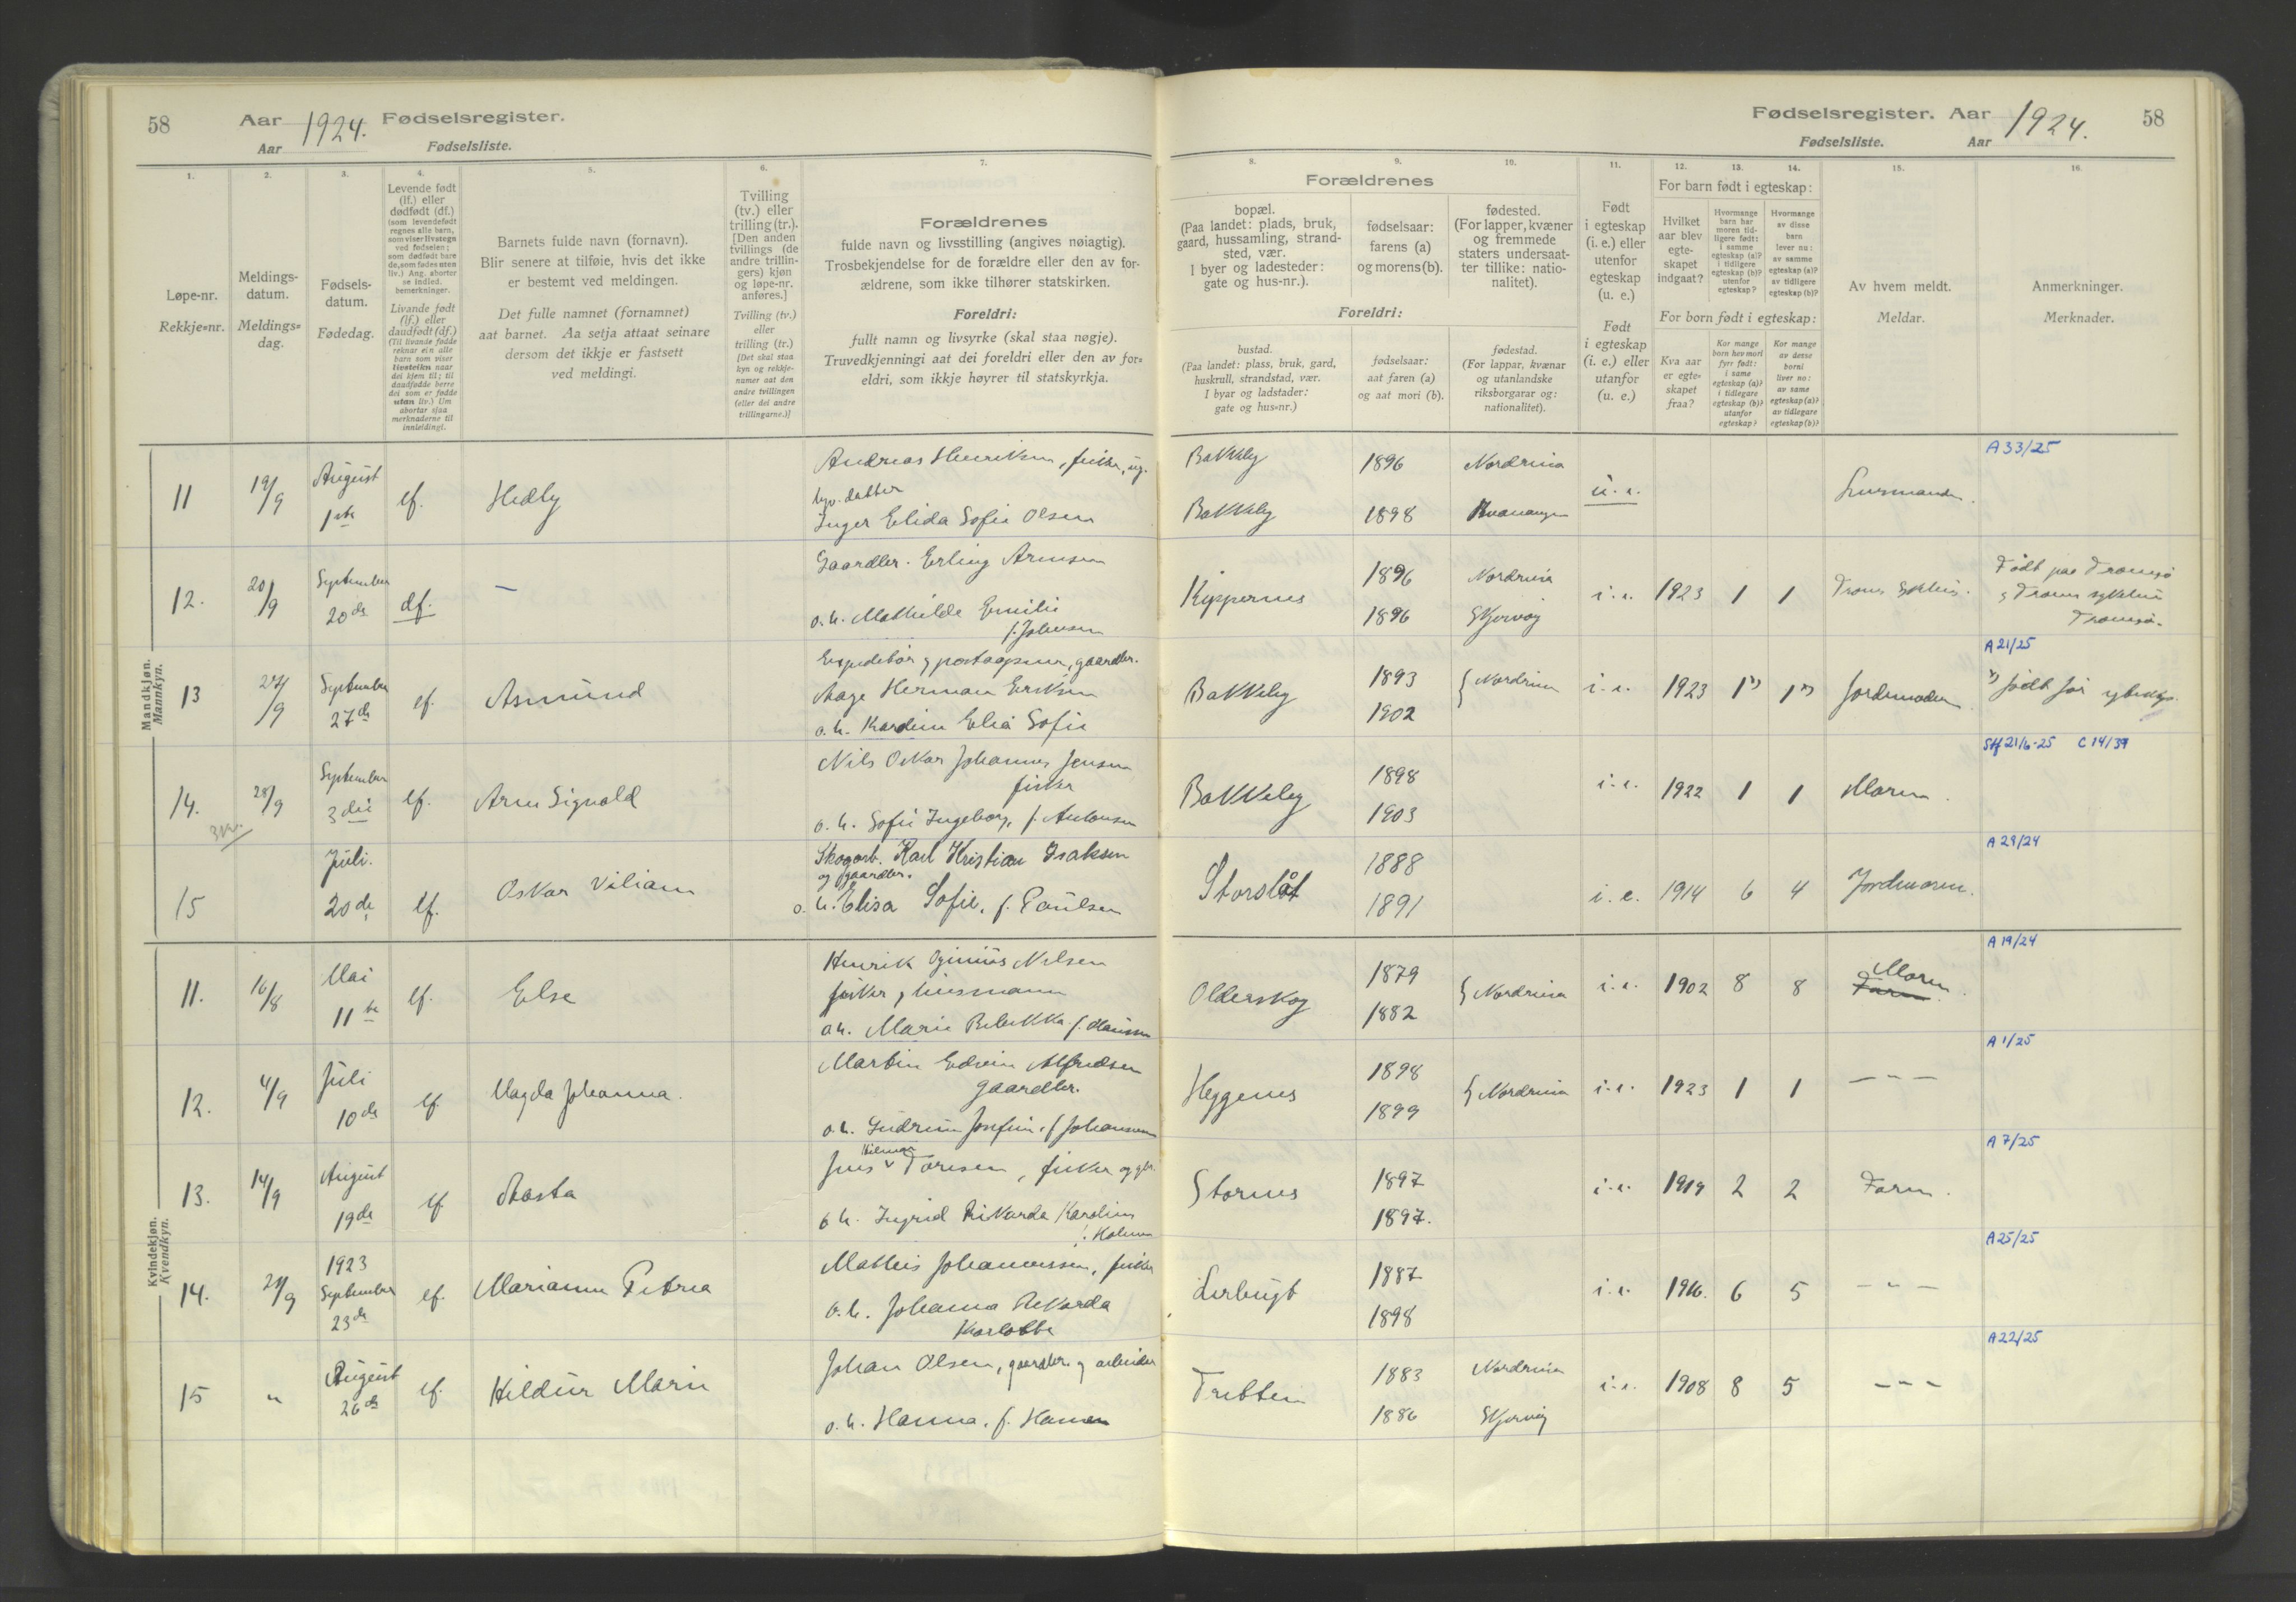 58
Aar 1924. Fødselsregister.
Aar Fødselsliste.
Fødselsregister. Aar 1924. 58
Fødselsliste. Aar
1. 2. 3. 4. 5. 6. 7.
Løpe-nr.
Rekkje=nr.
Meldings-
datum.
Meldings=
dag.
Fødsels-
datum.
Fødedag.
Levende født
(lf.) eller
dødfødt (df.)
(som levendefødt
regnes alle barn,
som viser livstegn
ved fødselen;
som dødfødt bare
de, som fødes uten
liv.) Ang. aborter
se indled.
bemerkninger.
Livande født
(lf.) eller
daudfødt (df.)
(Til livande fødde
reknar ein alle
barn som viser
livsteikn naar
dei kjem til; til
daudfødde berre
dei som er fødde
utan liv.) Um
abortar sjaa
merknaderne til
innleidingi.
Barnets fulde navn (fornavn).
Blir senere at tilføie, hvis det ikke
er bestemt ved meldingen.
Det fulle namnet (fornamnet)
aat barnet. Aa setja attaat seinare
dersom det ikkje er fastsett
ved meldingi.
Tvilling
(tv.) eller
trilling (tr.).
[Den anden
tvillings (de
andre trillin-
gers) kjøn
og løpe-nr.
anføres.]
Tvilling (tv.)
eller
trilling (tr.)
[Det skal staa
kyn og rekkje-
numer aat den
andre tvillingen
(eller dei andre
trillingarne.)]
Forældrenes
fulde navn og livsstilling (angives nøiagtig).
Trosbekjendelse for de forældre eller den av for-
ældrene, som ikke tilhører statskirken.
Foreldri:
fullt namn og livsyrke (skal staa nøgje).
Truvedkjenningi aat dei foreldri eller den av for=
eldri, som ikkje høyrer til statskyrkja.
8. 9. 10. 11. 12. 13. 14. 15. 16.
Forældrenes
bopæl.
(Paa landet: plads, bruk,
gaard, hussamling, strand-
sted, vær.
I byer og ladesteder:
gate og hus-nr.).
fødselsaar:
farens (a)
og morens (b).
fødested.
(For lapper, kvæner
og fremmede
staters undersaat-
ter tillike: natio-
nalitet).
Foreldri:
bustad.
(Paa landet: plass, bruk, gard,
huskrull, strandstad, vær.
I byar og ladstader:
gate og hus=nr.)
fødselsaar:
aat faren (a)
og aat mori (b).
fødestad.
(For lappar, kvænar
og utanlandske
riksborgarar og:
nationalitet).
Født
i egteskap
(i. e.) eller
utenfor
egteskap
(u. e.)
Født
i egteskap
(i. e.) eller
utanfor
(u. e.)
For barn født i egteskap:
Hvilket
aar blev
egte-
skapet
indgaat?
Hvormange
barn har
moren tid-
ligere født:
i samme
egteskap (a)?
i tidligere
egteskap (b)?
utenfor
egteskap?
Hvormange
av disse
barn
lever nu:
av samme
egteskap (a)?
av tidligere
egteskap (b)?
For born født i egteskap:
Kva aar
er egte-
skapet
fraa?
Kor mange
born hev mori
fyrr født:
i same
egteskap (a)?
i tidlegare
egteskap (b)?
utanfor
egteskap?
Kor mange
av desse
borni
liver no:
av same
egteskap (a)?
av tidlegare
egteskap (b)?
Av hvem meldt.
Meldar.
Anmerkninger.
Merknader.
Mandkjøn.
Mannkyn.
11 19/9 August 1ste lf. Hedly
Andreas Henriksen, fisker, ug.
Inger Elida Sofie Olsen
Bakkeby 1896 Nordreisa
Bakkeby 1898 Kvænangen
u. e.
A 33/25
12. 20/9 September 20de df. —
Gaardbr. Erling Arnesen
o. h. Mathilde Emilie
f. Johnsen
Kippernes 1896 Nordreisa
1896 Skjervøy
i. e. 1923 1 1
Født paa Tromsø
Tromsø.
13 27/9 September 27de lf. Asmund
Expeditør og postaapner, gaardbr.
Aage Herman Eriksen
o. h. Kardine Elea Sofie
Bakkeby 1893 1902 Nordreisa i. e. 1923 1*) 1*) Jordmoder
A 21/25
*) født før
14. 28/9 September 3die lf. Arne Sigvald
Nils Oskar Johannes Jensen
fisker
o. h. Sofie Ingeborg, f. Antonsen
Bakkeby 1898 1903 i. e. 1922 1 1 Moren.
21/6-25 C 14/39
15 Juli. 20de lf. Oskar Viliam
Skogarb. Karl Kristian Isaksen
og gaardbr.
o. h. Elisa Sofie, f. Paulsen
Storslåt 1888 1891 i. e. 1914 6 4 Jordmoren.
A 29/24
Kvindekjøn.
Kvendkyn.
11. 16/8 Mai 11te lf. Else
Henrik Nilsen
fisker, husmann
o. h. Marie Rebekka f. Hansen
Olderskog 1879 1882 Nordreisa i. e. 1902 8 8 Moren
Faren.
A 19/24
12. 4/9 Juli 10de lf. Magda Johanna.
Martin Edvin Alfredsen
gaardbr.
o. h. Gudrun Josefine, f. Johansen
Heggenes 1898 1899 Nordreisa i. e. 1923 1 1 — " —
A 1/25
13. 14/9 August 19de lf. Aasta
Hilmar
Jens Toresen, fisker og gbr.
o. h. Ingrid Rikarda Karoline
Stornes 1897 1897. i. e. 1919 2 2 Faren.
A 7/25
14. 21/9 1923 September 23de lf. Marianne Petrea
Mathis Johannessen, fisker
o. h. Johanna Rekarda
Karlotte
Lerbugt 1887 1898 i. e. 1916. 6 5 — " —
A 25/25
15 " August 26de lf. Hildur Marie
Johan Olsen, gaardbr. og arbeider
o. h. Hanna, f. Hansen
Tretten 1883 Nordreisa
1886 Skjervøy
i. e. 1908 8 5 — " —
A 22/25